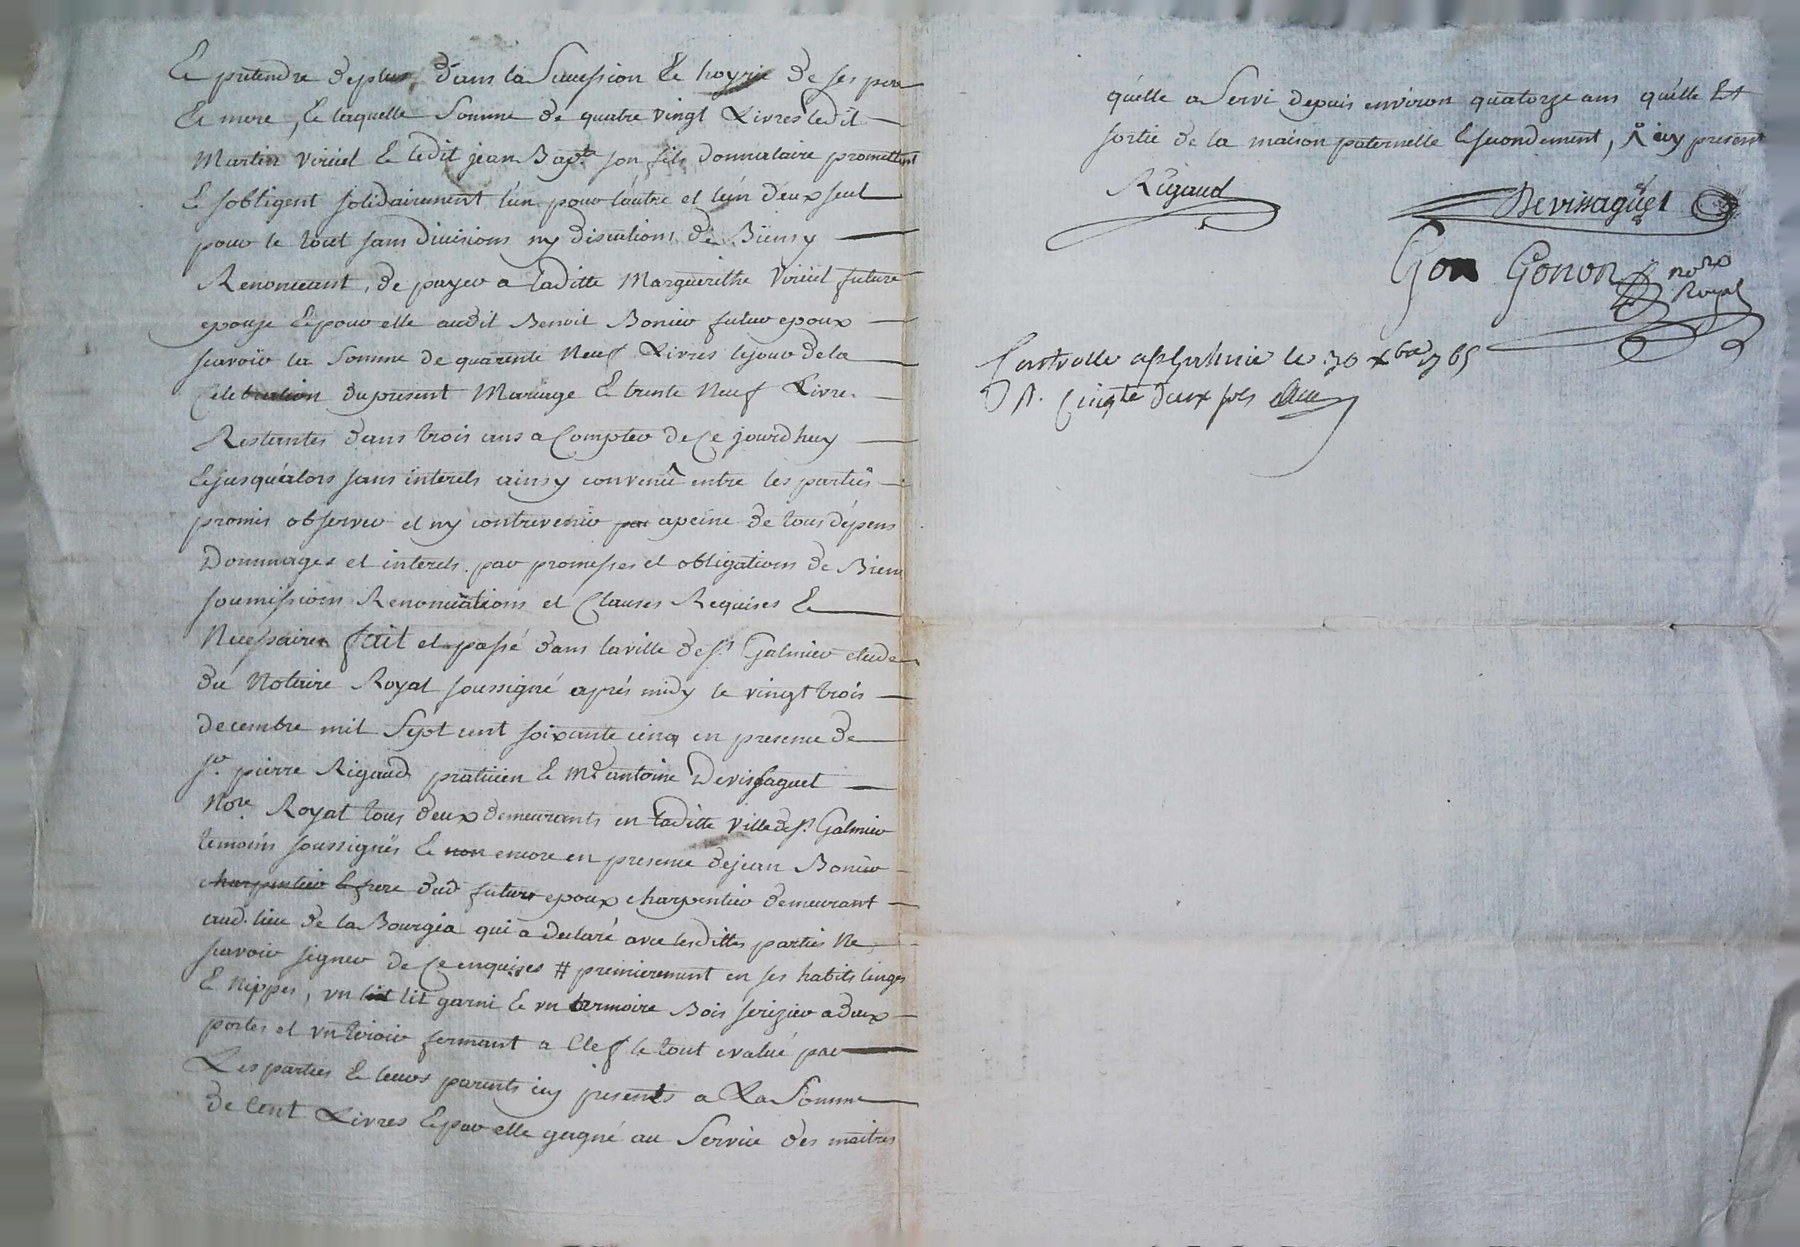 Et pretendre deplus dans la Succession Et hoyrie de ses pere
Et mere, Et laquelle Somme de quatre vingt Livres ledit
Martin viriuel Et ledit jean Bap.te son fils donnataire promettent
Et sobligent solidairement l'ún pour l'áutre et l'ún d'eux seul
pour le tout sans divisions ny discutions de Biens y
Renonceant, de payer a laditte Marguerithe viriuel future
epouse Et pour elle audit Benoit Bonier futur epoux
scavoir la Somme de quarente Neuf Livres le jour de la
Celebration du present Mariage Et trente Neuf Livres
Restantes dans trois ans a Compter de Ce jourdhuy
Et jusqu'alors sans interets ainsy convenû entre les parties
promis observer et ny contrevenir par apeine de tous dépens
Dommages et interets par promesses et obligations de Biens
soumissions Renonciations et Clauses Requises Et
Necessaires fait et passé dans la ville de St Galmier etude
du Notaire Royal soussigné aprés midy le vingt trois
decembre mil Sept cent soixante cinq en presence de
sr. pierre Rigaud praticien Et Me antoine Devissaguet
Nore. Royal tous deux demeurants en laditte ville de St Galmier
temoins soussignés Et non encore en presence de jean Bonier
charpentier Et frere dud futur epoux charpentier demeurant
aud. lieu de la Bourgia qui a declaré avec lesdittes parties Ne
scavoir signer de Ce enquises # premierement en ses habits linges
Et Nippes, un lit garni Et un armoire Bois serizier a deux
portes et un tiroir fermant a Clef le tout evalué par
Les parties Et leurs parents icy presents a La Somme
de Cent Livres Et par elle gagné au Service des maitres
quélle a Servi depuis environ quatorze ans quélle Est
sortie de la maison paternelle Et secondement, # icy present
Rigaud
Devissaguet
Gon Gonon nore
Royal
Controllé a St Galmier le 30 xbre 1765
cinqte deux sols